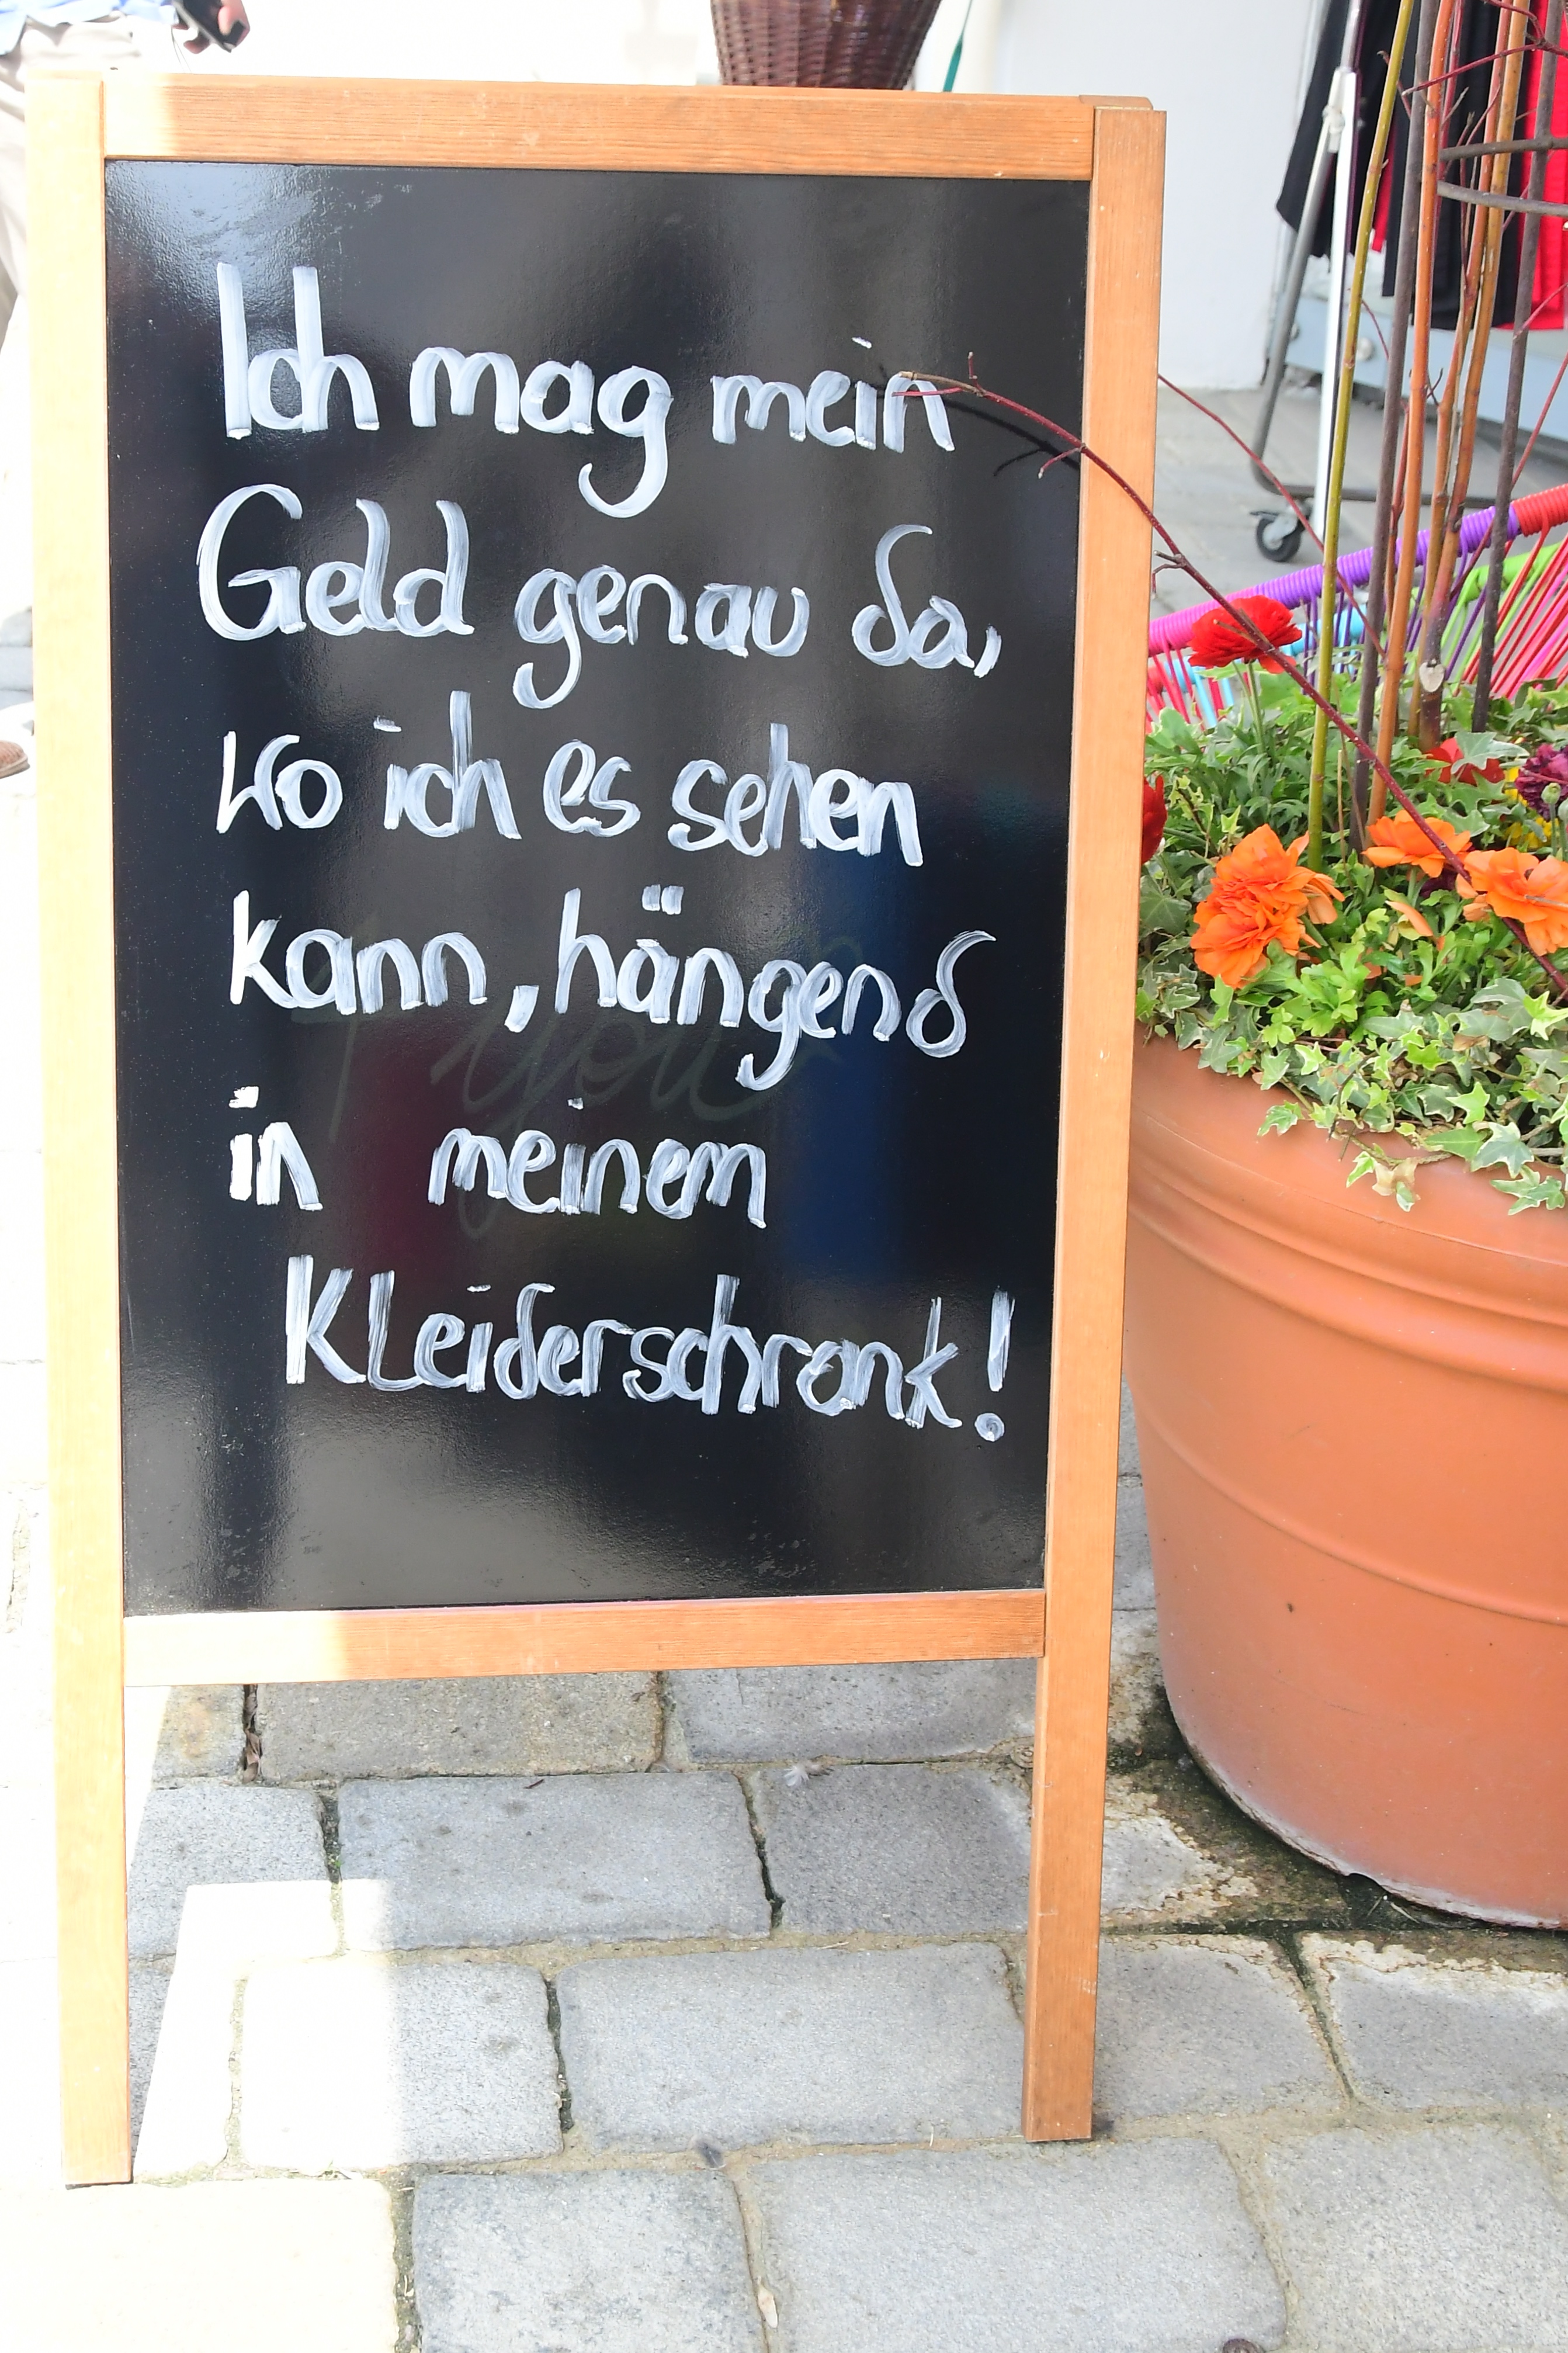 Ich mag mein
Geld genau da,
wo ich es sehen
kann, hängend
you
in meinem
Kleiderschrank!